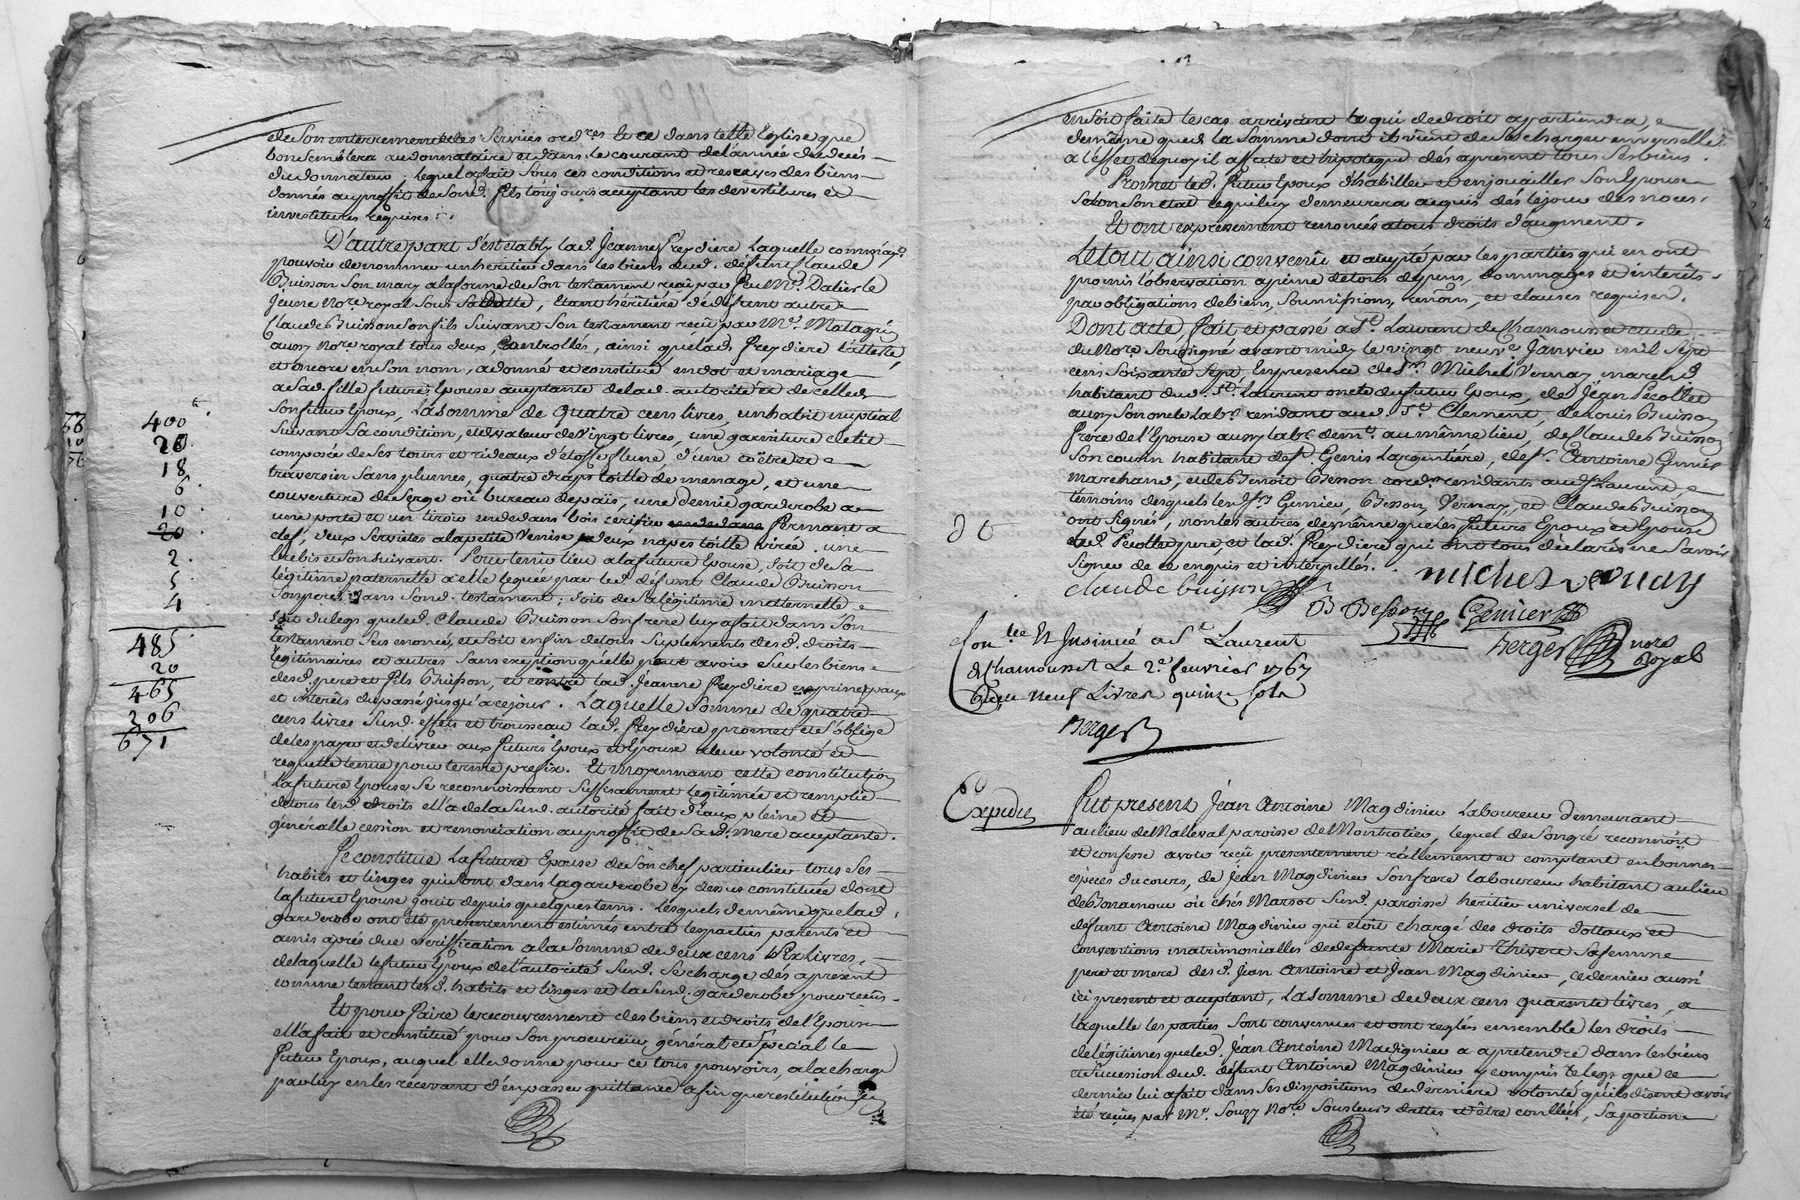 de Son enterrement et les Services ord.res le ce dans telle Eglise que
bon Semblera au donnataire et dans le courant de l'année du decés
du donnateur, lequel a fait Sous ces conditions et reserves des biens
donnés au proffit de Sond. fils toujours acceptant les devestitures et
investitures requises.
D'autre part s'est etably lad. Jeanne Freydiere laquelle comm
pouvoir de nommer un heritier dans les biens dud. défunt Claude
Buisson Son mary a la forme de Son testament reçu par feu M.e Dalier le
jeune No.re royal Sous Sa datte, Etant heritiére de défunt autre
Claude Buisson Son fils Suivant Son testament reçû par M.e Matagrin
aussy No.re royal tous deux Controllés, ainsi que lad. Freydiere l'atteste,
et encore en Son nom, a donné et constitué en dot et mariage
a Sad. fille future Epouse acceptante de lad. autorité et de celle de
Son futur Epoux, La Somme de quatre cens livres, un habit nuptial
Suivant Sa condition, et de valeur de Vingt livres, une garniture de lit
composée de Ses tours et rideaux d'etoffe fleuret d'une coëtre et
traversier Sans plumes, quatre draps toille de menage, et une
couverture de Serge ou bureau de païs, une demie garderobe a
une porte et un tiroir au dedans bois cerisier fermant a
clef, deux Serviétes a la petite Venise deux napes toille virée, une
brebis et Son Suivant. Pour tenir lieu a la future Epouse, Soit de Sa
légitime paternelle a elle leguée par led. défunt Claude Buisson
Son pere dans Sond. testament; Soit de Sa légitime maternelle
Soit du legs que led. Claude Buisson Son frere luy a fait dans Son
testament Sus enoncé, et Soit enfin de tous Suplements desd. droits
légitimaires et autres Sans exeption qu'elle peut avoir Sur les biens
desd. pere et fils Buisson, et contre lad. Jeanne Freydiere en principaux
et interêts du passé jusqu'a ce jour. Laquelle Somme de quatre
cens livres Susd. effets et trousseau lad. Freydiére promet et S'oblige
de les payer et délivrer aux futurs Epoux et Epouse a leur volonté et
requette tenue pour terme prefix. Et moyennant cette constitution
La future Epouse Se reconnoissant Suffisamment légitimée et remplie
de tous Sesd. droits ell'a de la Susd. autorité fait d'iceux pleine et
généralle cession et renonciation au proffit de Sad. mere acceptante.
Se constitue La future Epouse de Son chef particulier tous Ses
habits et linges qui Sont dans la garderobe cy dessus constituée dont
la future Epouse jouit depuis quelques tems. Lesquels de même que lad.
garderobe ont été presentement estimés entre les parties parents et
amis aprés due veriffication a la Somme de deux cens Six Livres,
de laquelle le futur Epoux de l'autorité Susd. Se charge dés apresent
comme tenant lesd. habits et linges et la Susd. garderobe pour reçûs.
Et pour faire le recouvrement des biens et droits de l'Epouse
ell'a fait et constitué pour Son procureur général et Special le
futur Epoux, auquel elle donne pour ce tous pouvoirs, a la charge
par luy en les recevant d'en passer quittance afin que restitution
400
20
18
6
10
20
2
5
4
485
20
465
206
671
en Soit faite le cas arrivant a qui de droit appartiendra,
de même que de la Somme dont il vient de Se charger envers elle
a l'effet de quoy il affecte et hipoteque dés apresent tous Ses biens.
Promet led. futur Epoux d'habiller et enjouailler Son Epouse
Selon Son etat ce qui luy demeurera acquis dés le jour des noces.
Et ont expressement renoncés a tous droits d'augment.
Le tout ainsi convenu et accepté par les parties qui en ont
promis l'observation a peine de tous depens, dommages et interêts
par obligations de biens, Soumissions, renon.s, et clauses requises.
Dont acte fait et passé a S.t Laurent de Chamousset etude
du No.re Soussigné avant midy le vingt neuf.e Janvier mil Sept
cens Soixante Sept, En presence de S.r Michel Vernay march.d
habitant dud. S.t Laurent oncle du futur Epoux, de Jean Pecollet
aussy Son oncle Lab.r residant aud. S.t Clement, de Louis Buisson
frere de l'Epouse aussy lab.r dem.t au même lieu, de Claude Buisson
Son cousin habitant de S.t Genis Largentiére, de S.r Antoine Grnier
marchand, et de Benoit Besson cord.r residants aud. S.t Laurent,
témoins desquels lesd. S.rs Besson, Vernay, et Claude Buisson
ont Signés, non les autres de même que les futurs Epoux et Epouse
led. Pecollet pere, et lad. Freydiere qui ont tous déclarés ne Savoir
Signer de ce enquis et interpellés.
michel vernay
claude buisson
B Besson
berger
nore
Royal
Con.lée Et Insinué a S.t Laurent
de Chamousset Le 2.e fevrier 1767
Reçu neuf Livres quinze Sols
Berger
Expedié
Fut present Jean Antoine Magdinier Laboureur demeurant
au lieu de Malleval paroisse de Montrotier, lequel de Son gré reconnoit
et confesse avoir reçû presentement réellement et comptant en bonnes
espéces du cours, de Jean Magdinier Son frere laboureur habitant au lieu
de Bonamour ou chés Marsot Susd. paroisse heritier universel de
défunt Antoine Magdinier qui etoit chargé des droits dottaux et
conventions matrimonialles de defunte Marie Thivert Sa femme
pere et mere desd. Jean Antoine et Jean Magdinier, ce dernier aussi
ici present et acceptant, La Somme de deux cens quarente livres, a
laquelle les parties Sont convenues et ont reglés ensemble les droits
de légitimes que led. Jean Antoine Madignier a a pretendre dans les biens
et Succession dud. défunt Antoine Magdinier y compris le legs que ce
dernier lui a fait dans Ses dispositions de derniere volonté qu'ils disent avoir
été reçues par M.e Souzy No.re Sous leurs dattes et être conllées, Sa portion